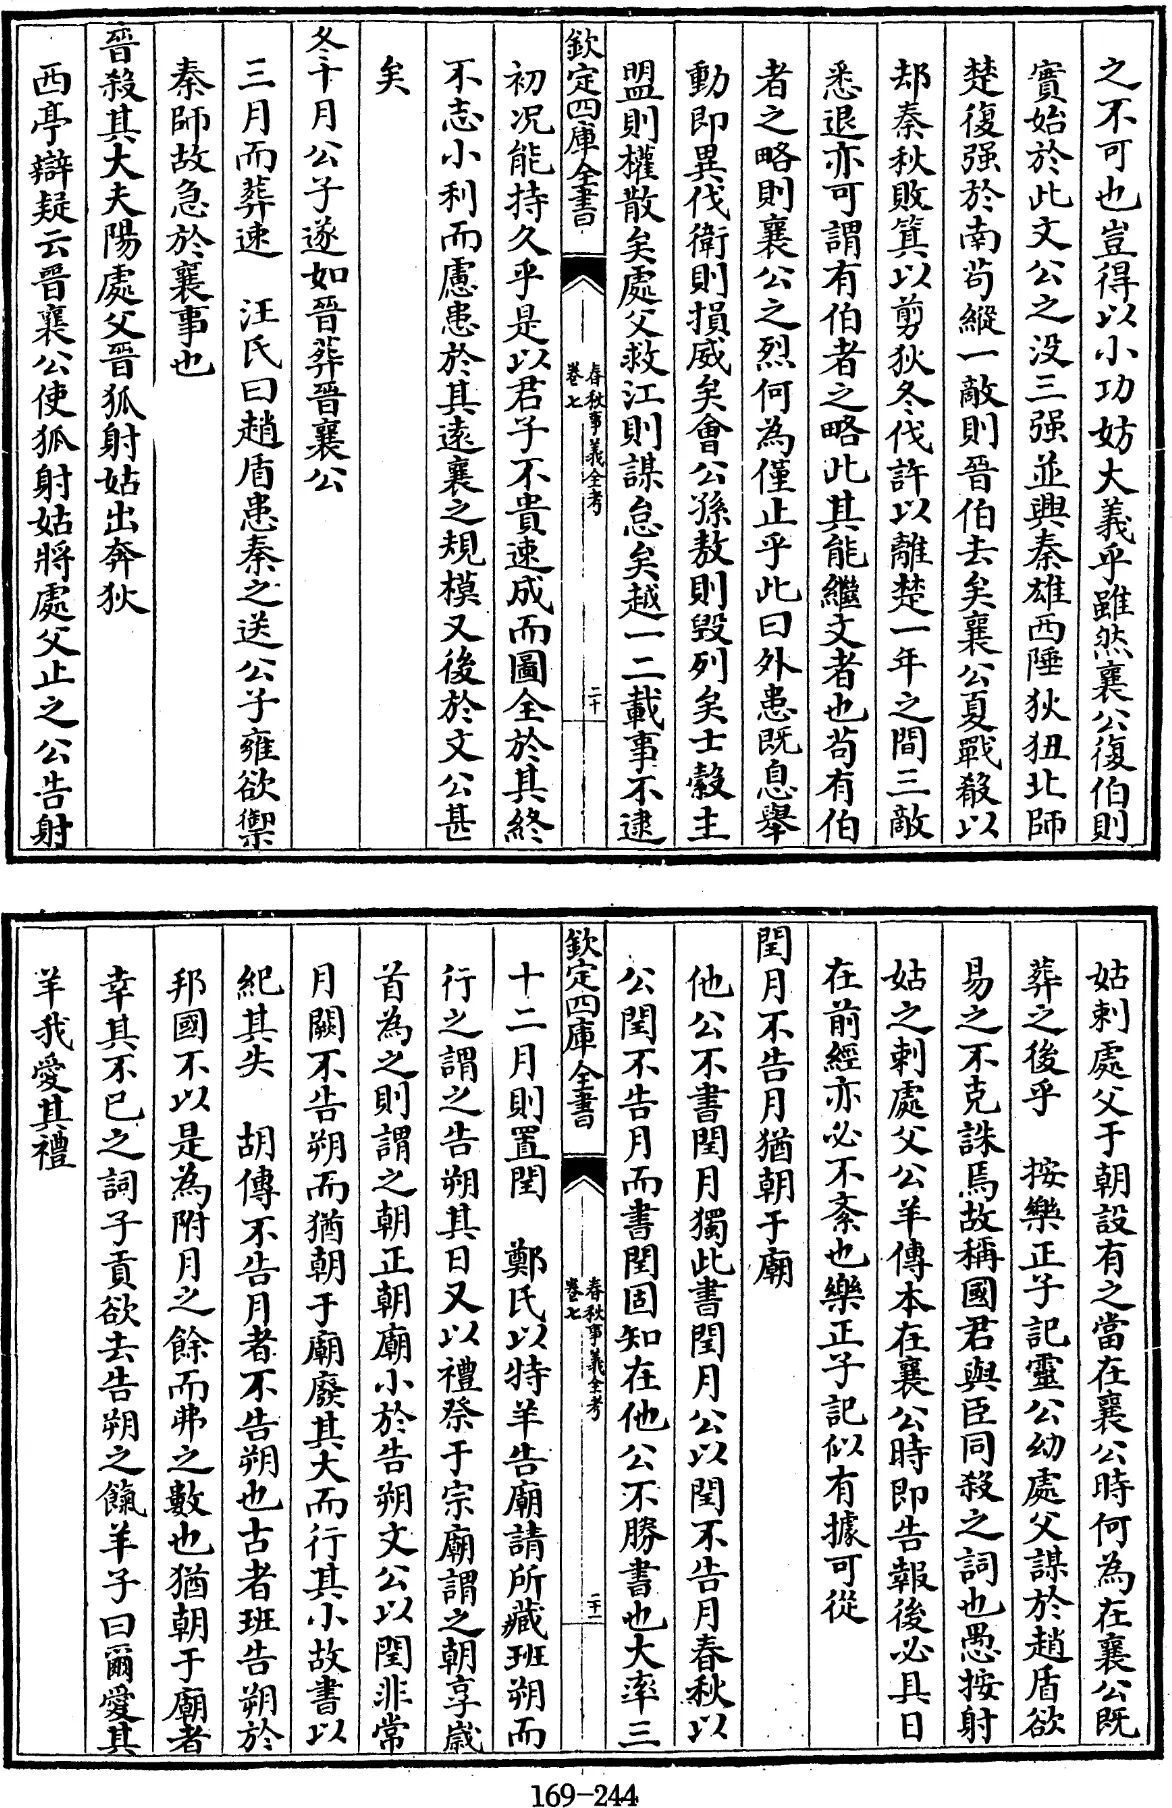 之不可也豈得以小功妨大義乎雖然襄公復伯則
實始於此文公之没三强並興秦雄西陲狄狃北師
楚復强於南茍縱一敵則晉伯去矣襄公夏戰殽以
却秦秋敗箕以剪狄冬伐許以離楚一年之間三敵
悉退亦可謂有伯者之略此其能繼文者也茍有伯
者之略則襄公之烈何為僅止乎此曰外患既息舉
動即異伐衛則損威矣會公孫敖則毀列矣士縠主
盟則權散矣處父救江則謀怠矣越一二載事不逮
欽定四庫全書
春秋事義全考
卷七
二十
初况能持久乎是以君子不貴速成而圖全於其終
不志小利而慮患於其遠襄之規模又後於文公甚
矣
冬十月公子遂如晉葬晉襄公
三月而葬速　汪氏曰趙盾患秦之送公子雍欲禦
秦師故急於襄事也
晉殺其大夫陽處父晉狐射姑出奔狄
西亭辯疑云晉襄公使狐射姑將處父止之公告射
姑刺處父于朝設有之當在襄公時何為在襄公既
葬之後乎　按樂正子記靈公幼處父謀於趙盾欲
易之不克誅焉故稱國君與臣同殺之詞也愚按射
姑之刺處父公羊傳本在襄公時即告報後必具日
在前經亦必不紊也樂正子記似有據可從
閏月不告月猶朝于廟
他公不書閏月獨此書閏月公以閏不告月春秋以
公閏不告月而書閏固知在他公不勝書也大率三
欽定四庫全書
春秋事義全考
卷七
二十一
十二月則置閏　鄭氏以特羊告廟請所藏班朔而
行之謂之告朔其日又以禮祭于宗廟謂之朝享歲
首為之則謂之朝正朝廟小於告朔文公以閏非常
月闕不告朔而猶朝于廟廢其大而行其小故書以
紀其失　胡傳不告月者不告朔也古者班告朔於
邦國不以是為附月之餘而弗之數也猶朝于廟者
幸其不已之詞子貢欲去告朔之餼羊子曰爾愛其
羊我愛其禮
169-244